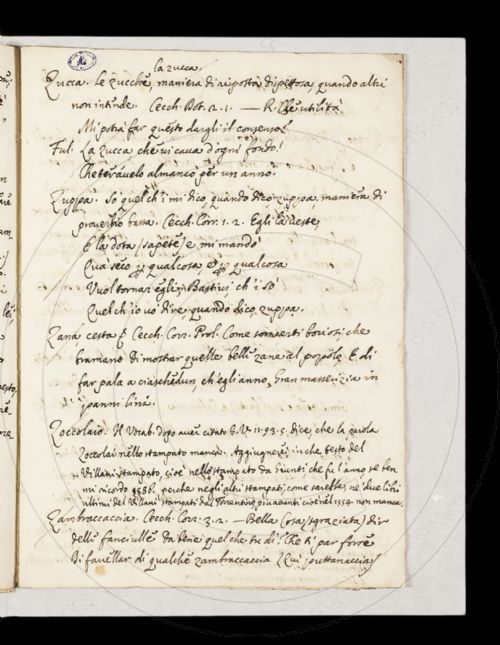 la zucca.
Zucca. Le zucche, maniera di risposta dispettosa quando altri
non intende. Cecch. Dot. 2. 1. — R. Che utilità
Mi potrà far questo dargli il consenso?
Ful. La zucca che vi cava d'ogni fondo!
Che terávelo almanco per un anno.
Zuppa. So quel ch'i mi dico, quando dico zuppa, maniera di
proverbio bassa. Cecch. Corr. 1. 2. Egli la veste,
E la dota (sapete) e mi mandò
Qua seco per qualcosa e per qualcosa
Vuol tornar egli; Bastivi, ch'i so
Quel ch'io vo dire, quando dico, zuppa.
Zana cesta Cecch. Corr. Prol. Come son certi boriosi, che
bramano di mostrar quelle belle zane al popolo, E di
far pala a ciaschedun, ch'egli anno, Gran masserizia in
panni lini.
Zoccolaio. Il Vocab. dopo aver citato G. V. 11. 93. 5. dice, che la parola
Zoccolai nello stampato manca. Aggiugnerei, in che testo del
Villani stampato, cioè nello stampato da Giunti che fu l'anno se ben
mi ricordo 1586. perche negli altri stampati, come sarebbe, ne' due libri
ultimi del Villani stampati dal Torrentino gran avanti cioè nel 1554 non manca.
Zambraccaccia. Cecch. Corr. 3. 2. — Bella Cosa, sgraziata, dir
delle fanciulle da bene quel che tu di! Che ti par forse
Di favellar di qualche zambraccaccia (Qui puttanaccia)